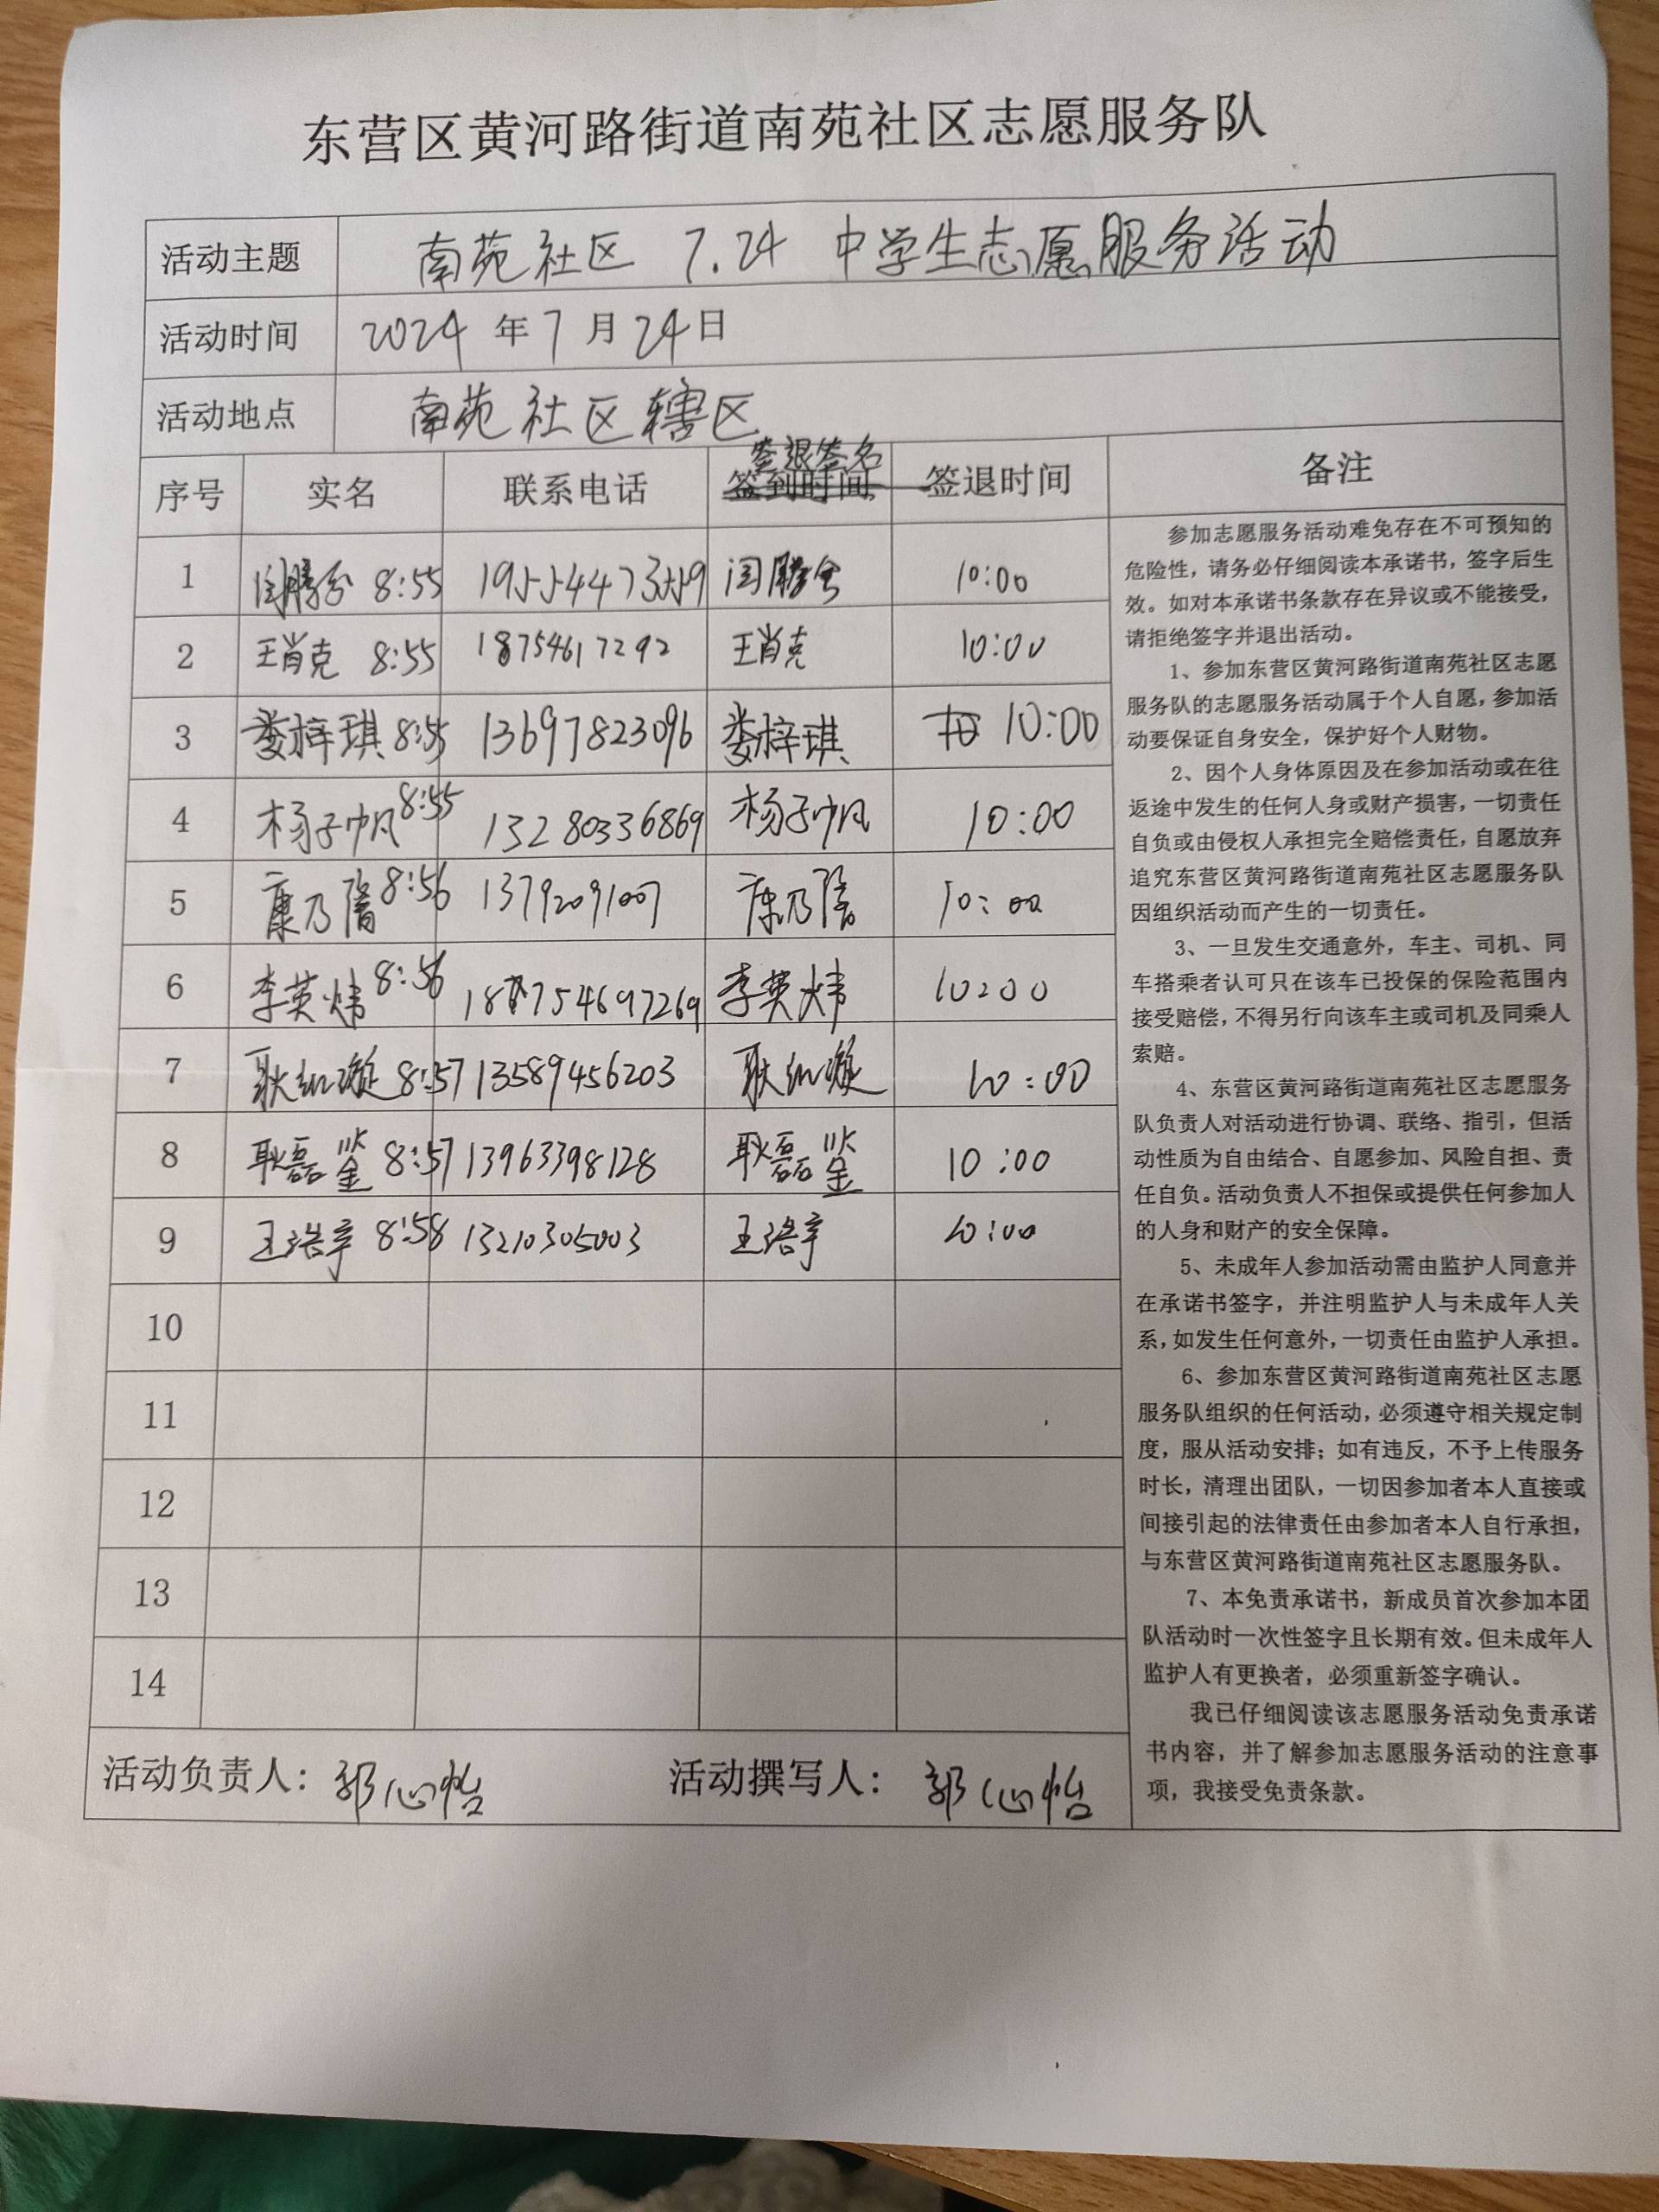 东营区黄河路街道南苑社区志愿服务队
活动主题 南苑社区 7.24 中学生志愿服务活动
活动时间 2024年7月24日
活动地点 南苑社区辖区
签退签名
序号 实名 联系电话 签到时间 签退时间 备注
1 8:55 10:00
2 王肖克 8:55 18754617292 王肖克 10:00
3 娄梓琪 8:55 13697823096 娄梓琪 10:00
4 杨子帆 8:55 13280336869 杨子帆 10:00
5 康乃 8:56 13792091007 康乃 10:00
6 李英炜 8:56 李英炜 10:00
7 耿 8:57 13589456203 耿 10:00
8 耿磊鉴 8:57 13963398128 耿磊鉴 10:00
9 王浩宇 8:58 13210305003 王浩宇 10:00
10
11
12
13
14
参加志愿服务活动难免存在不可预知的
危险性，请务必仔细阅读本承诺书，签字后生
效。如对本承诺书条款存在异议或不能接受，
请拒绝签字并退出活动。
1、参加东营区黄河路街道南苑社区志愿
服务队的志愿服务活动属于个人自愿，参加活
动要保证自身安全，保护好个人财物。
2、因个人身体原因及在参加活动或在往
返途中发生的任何人身或财产损害，一切责任
自负或由侵权人承担完全赔偿责任，自愿放弃
追究东营区黄河路街道南苑社区志愿服务队
因组织活动而产生的一切责任。
3、一旦发生交通意外，车主、司机、同
车搭乘者认可只在该车已投保的保险范围内
接受赔偿，不得另行向该车主或司机及同乘人
索赔。
4、东营区黄河路街道南苑社区志愿服务
队负责人对活动进行协调、联络、指引，但活
动性质为自由结合、自愿参加、风险自担、责
任自负。活动负责人不担保或提供任何参加人
的人身和财产的安全保障。
5、未成年人参加活动需由监护人同意并
在承诺书签字，并注明监护人与未成年人关
系，如发生任何意外，一切责任由监护人承担。
6、参加东营区黄河路街道南苑社区志愿
服务队组织的任何活动，必须遵守相关规定制
度，服从活动安排；如有违反，不予上传服务
时长，清理出团队，一切因参加者本人直接或
间接引起的法律责任由参加者本人自行承担，
与东营区黄河路街道南苑社区志愿服务队。
7、本免责承诺书，新成员首次参加本团
队活动时一次性签字且长期有效。但未成年人
监护人有更换者，必须重新签字确认。
我已仔细阅读该志愿服务活动免责承诺
书内容，并了解参加志愿服务活动的注意事
项，我接受免责条款。
活动负责人：郭心怡 活动撰写人：郭心怡